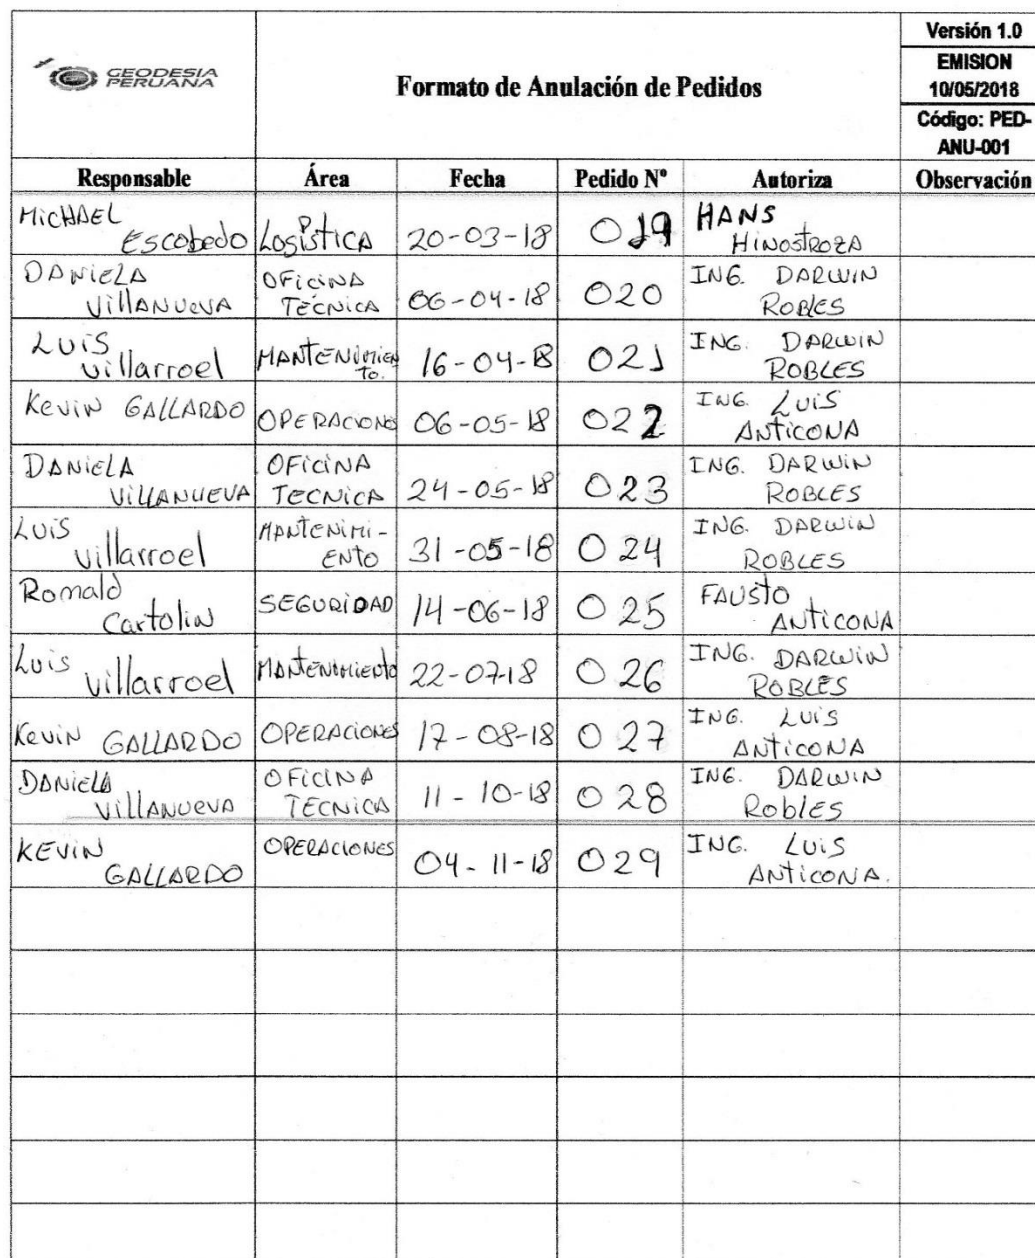 GEODESIA
PERUANA
Formato de Anulación de Pedidos
Versión 1.0
EMISION
10/05/2018
Código: PED-
ANU-001
Responsable Área Fecha Pedido N° Autoriza Observación
MICHAEL
Escobedo Logística 20-03-18 019 HANS
HINOSTROZA
DANIELA
VILLANUEVA OFICINA
TECNICA 06-04-18 020 ING. DARWIN
ROBLES
LUIS
villarroel MANTENIMIEN
TO. 16-04-18 021 ING. DARWIN
ROBLES
KEVIN GALLARDO OPERACIONES 06-05-18 022 ING. LUIS
ANTICONA
DANIELA
VILLANUEVA OFICINA
TECNICA 24-05-18 023 ING. DARWIN
ROBLES
LUIS
villarroel MANTENIMI-
ENTO 31-05-18 024 ING. DARWIN
ROBLES
Romald
Cartolin SEGURIDAD 14-06-18 025 FAUSTO
ANTICONA
Luis
villarroel MANTENIMIENTO 22-07-18 026 ING. DARWIN
ROBLES
KEVIN GALLARDO OPERACIONES 17-08-18 027 ING. LUIS
ANTICONA
DANIELA
VILLANUEVA OFICINA
TECNICA 11-10-18 028 ING. DARWIN
Robles
KEVIN
GALLARDO OPERACIONES 04-11-18 029 ING. LUIS
ANTICONA.